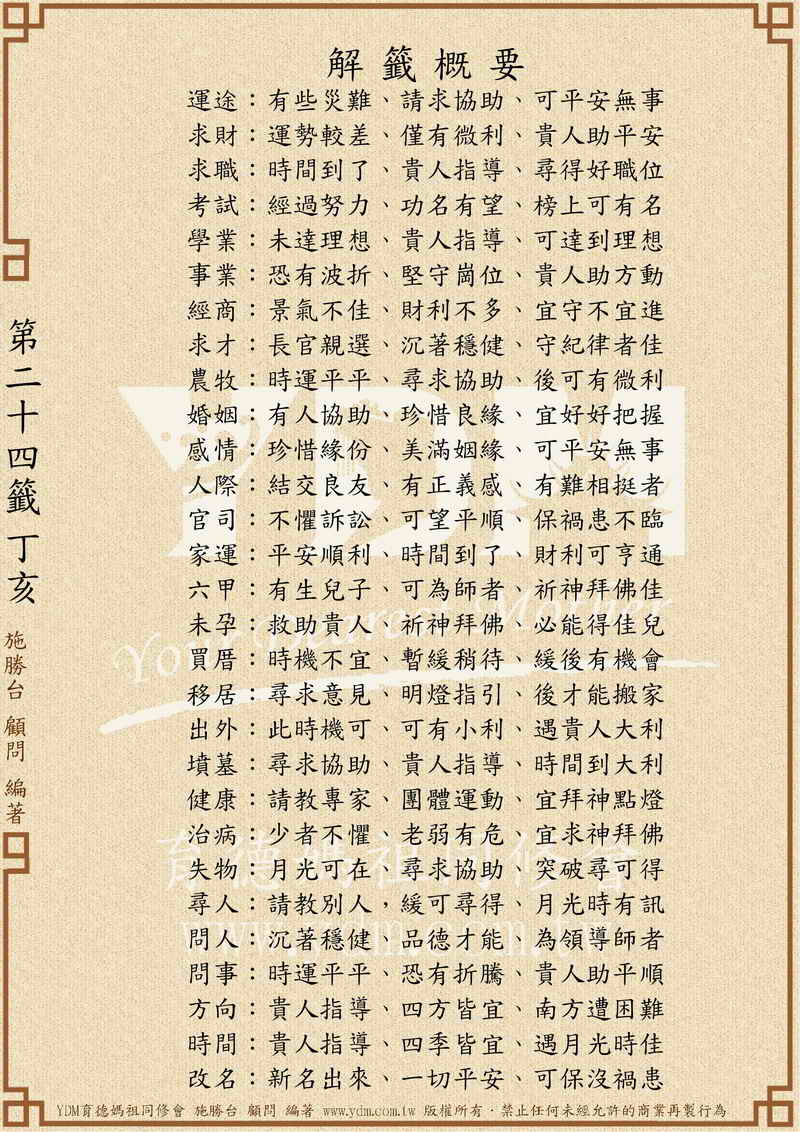 解籤概要
運途：有些災難、請求協助、可平安無事
求財：運勢較差、僅有微利、貴人助平安
求職：時間到了、貴人指導、尋得好職位
考試：經過努力、功名有望、榜上可有名
學業：未達理想、貴人指導、可達到理想
事業：恐有波折、堅守崗位、貴人助方動
經商：景氣不佳、財利不多、宜守不宜進
求才：長官親選、沉著穩健、守紀律者佳
農牧：時運平平、尋求協助、後可有微利
婚姻：有人協助、珍惜良緣、宜好好把握
感情：珍惜緣份、美滿姻緣、可平安無事
人際：結交良友、有正義感、有難相挺者
官司：不懼訴訟、可望平順、保禍患不臨
家運：平安順利、時間到了、財利可亨通
六甲：有生兒子、可為師者、祈神拜佛佳
未孕：救助貴人、祈神拜佛、必能得佳兒
買厝：時機不宜、暫緩稍待、緩後有機會
移居：尋求意見、明燈指引、後才能搬家
出外：此時機可、可有小利、遇貴人大利
墳墓：尋求協助、貴人指導、時間到大利
健康：請教專家、團體運動、宜拜神點燈
治病：少者不懼、老弱有危、宜求神拜佛
失物：月光可在、尋求協助、突破尋可得
尋人：請教別人，緩可尋得、月光時有訊
問人：沉著穩健、品德才能、為領導師者
問事：時運平平、恐有折騰、貴人助平順
方向：貴人指導、四方皆宜、南方遭困難
時間：貴人指導、四季皆宜、遇月光時佳
改名：新名出來、一切平安、可保沒禍患
第二十四籤丁亥
施勝台 顧問 編著
YDM
Your Dearest Mother
育德媽祖同修會
www.ydm.com.tw
YDM育德媽祖同修會 施勝台 顧問 編著 www.ydm.com.tw 版權所有．禁止任何未經允許的商業再製行為